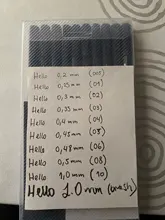 Hello 0,2 mm (003)
Hello 0,15mm (01)
Hello 0,3 mm (02)
Hello 0,35 mm (03)
Hello 0,4 mm (04)
Hello 0,45mm (05)
Hello 0,48mm (06)
Hello 0,5mm (08)
Hello 1,0mm (10)
Hello 1.0 mm (brush)